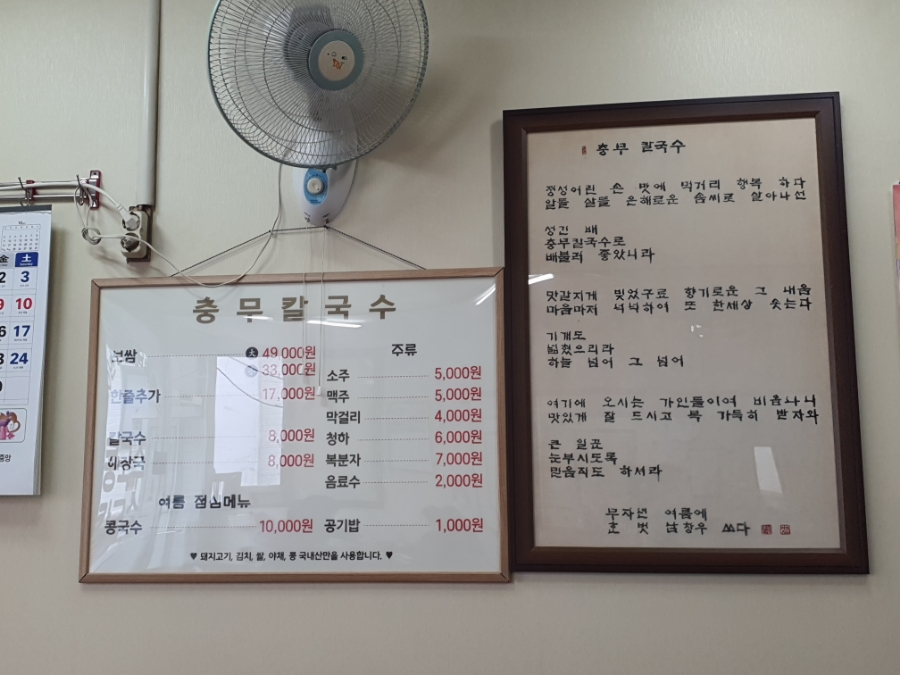 충무칼국수
보쌈 大 49,000원
33,000원
한줄추가 17,000원
칼국수 8,000원
8,000원
여름 점심메뉴
콩국수 10,000원
주류
소주 5,000원
맥주 5,000원
막걸리 4,000원
청하 6,000원
복분자 7,000원
음료수 2,000원
공기밥 1,000원
♥ 돼지고기, 김치, 쌀, 야채, 콩 국내산만을 사용합니다. ♥
충무 칼국수
정성어린 손 맛에 먹거리 행복 하다
알뜰 살뜰 은혜로운 솜씨로 살아나선
성긴 배
충무칼국수로
배불러 좋았니라
맛깔지게 빚었구료 향기로운 그 내음
마음마저 넉넉하여 또 한세상 웃는다
기개도
넓혔으리라
하늘 넘어 그 넘어
여기에 오시는 가인들이여 비옵나니
맛있게 잘 드시고 복 가득히 받자와
큰 일꾼
눈부시도록
믿음직도 하셔라
무자년 여름에
벗 남창우 쓰다
金 土
2 3
9 10
16 17
23 24
중앙